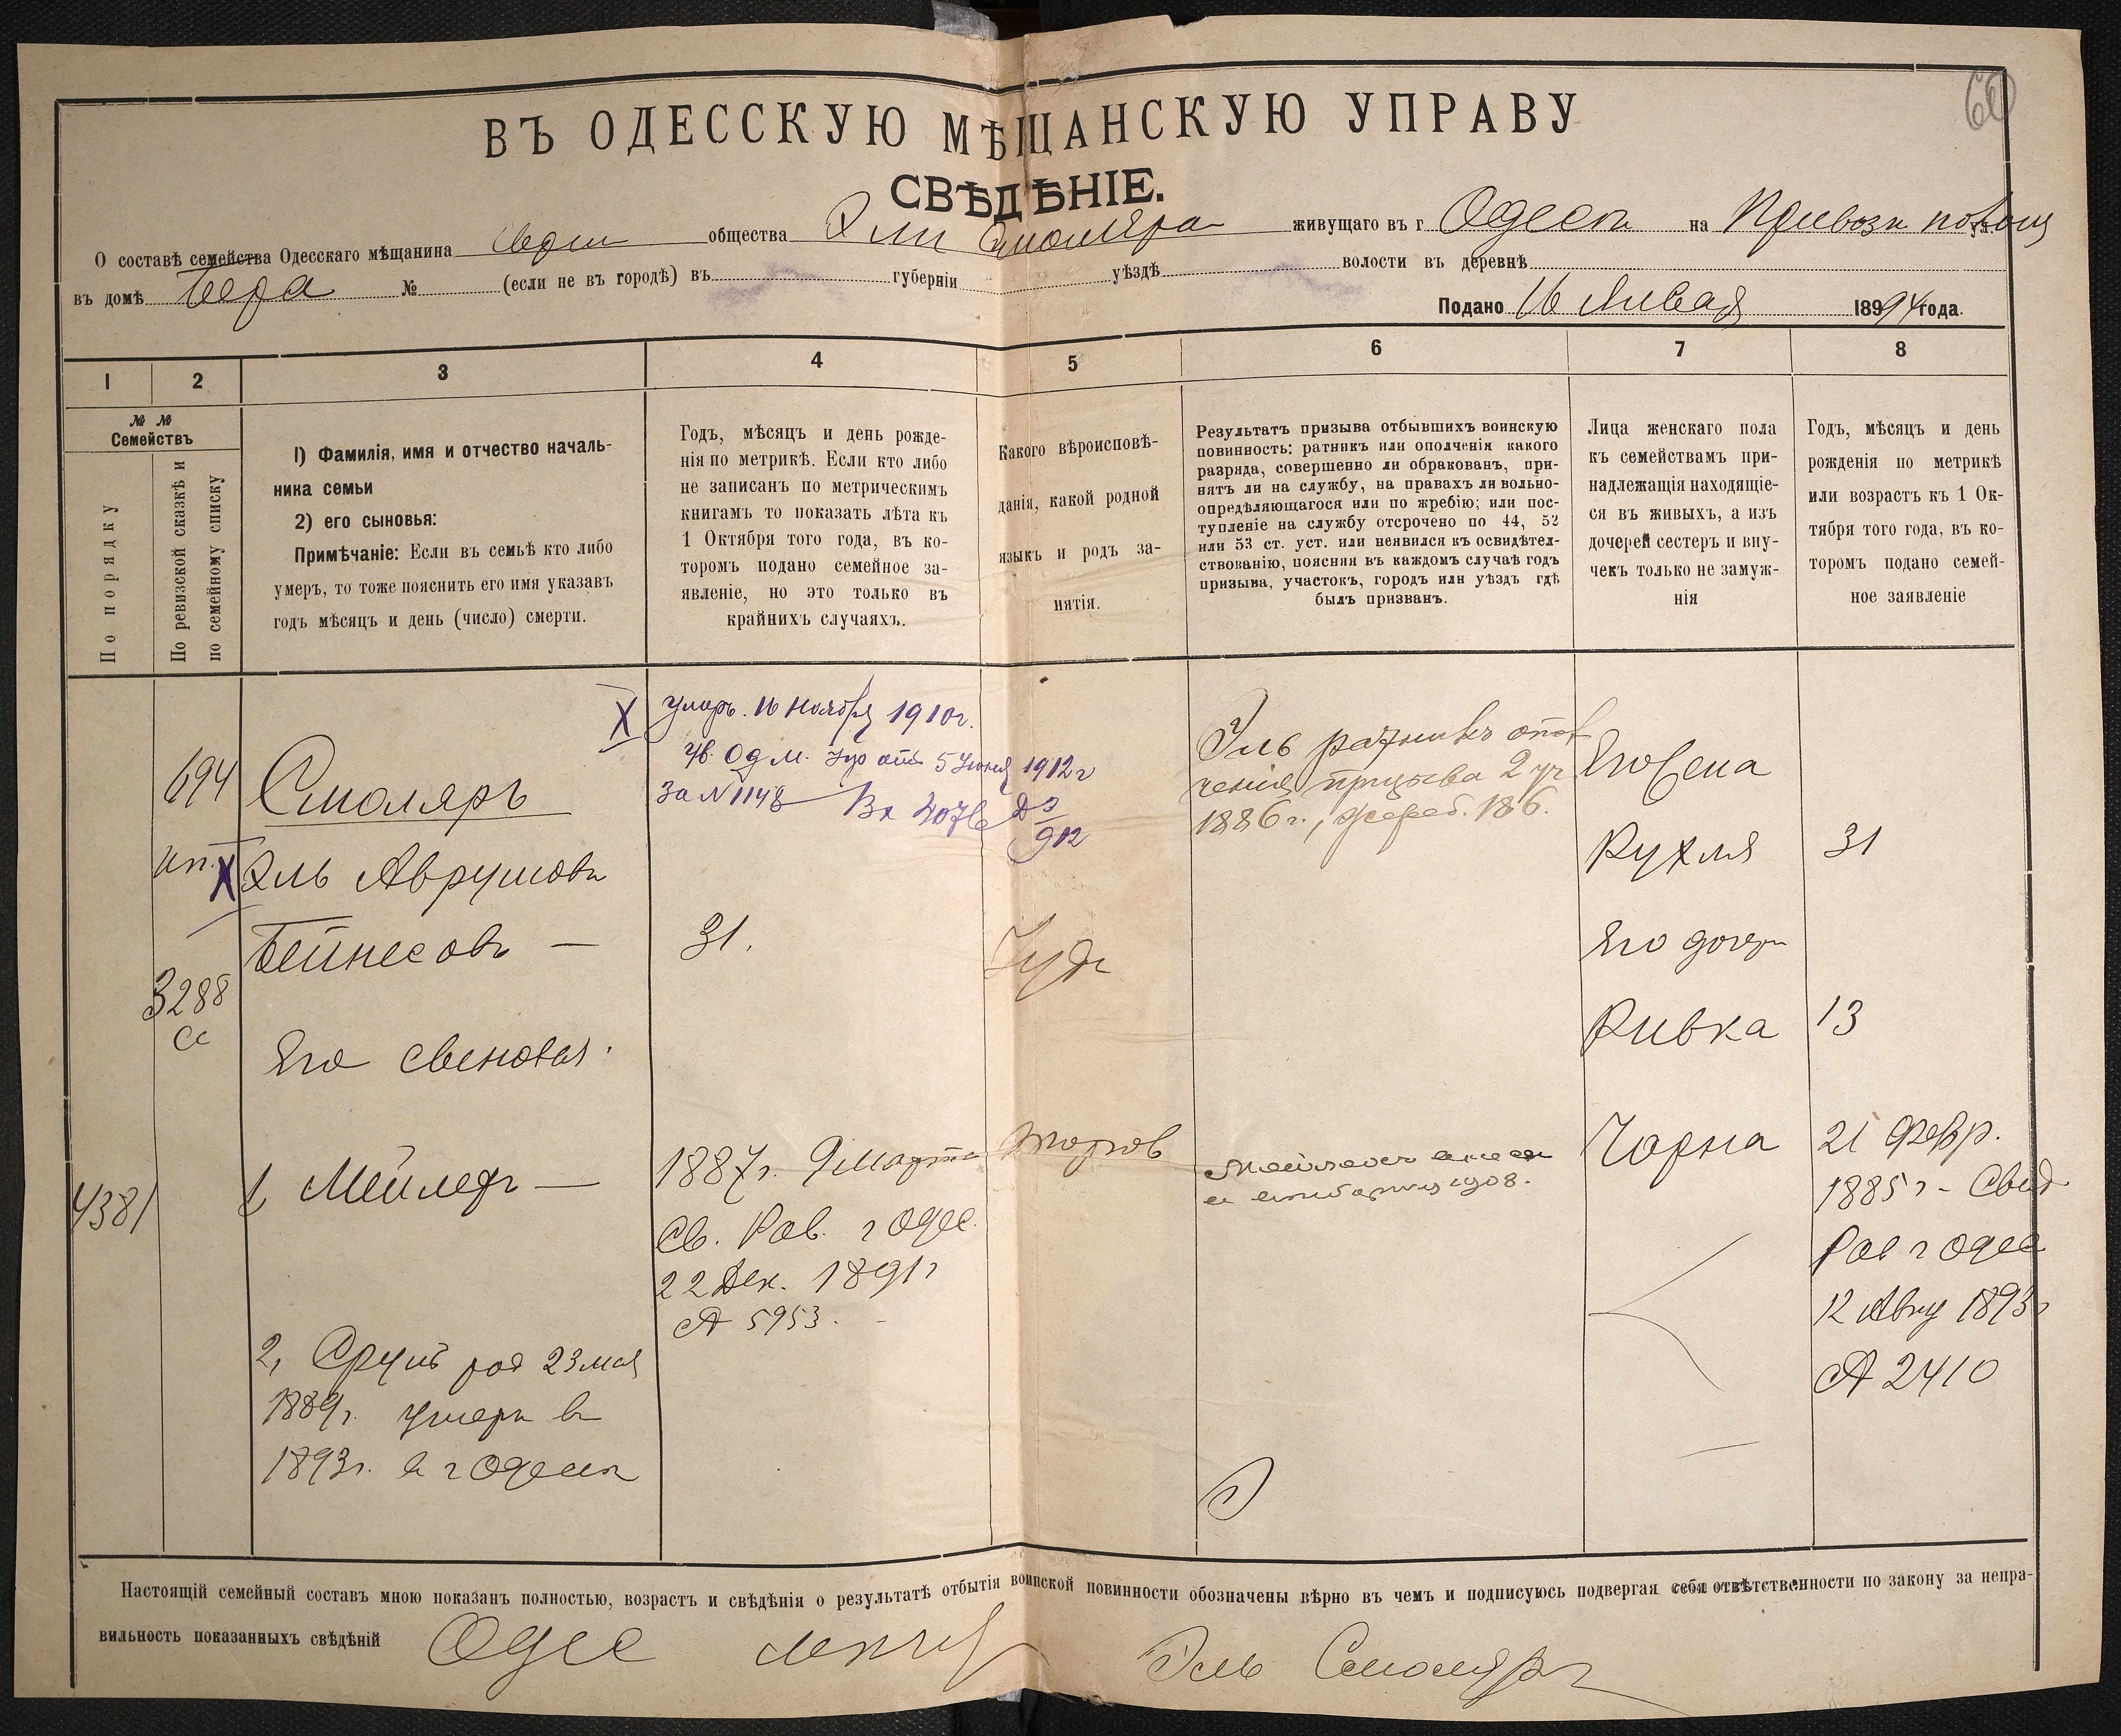 60
ВЪ ОДЕССКУЮ МѢЩАНСКУЮ УПРАВУ
СВѢДѢНІЕ.
О составѣ семейства Одесскаго мѣщанина Евр. общества Эли Смоляра живущаго въ г Одессѣ на Привозн площ
въ домѣ Бера № (если не въ городѣ) въ губерніи уѣздѣ волости въ деревнѣ
Подано 16 Январ 1894 года.
1 2 3 4 5 6 7 8
№ №
Семействъ
По порядку
По ревизской сказкѣ и
по семейному списку
1) Фамилія, имя и отчество началь-
ника семьи
2) его сыновья:
Примѣчаніе: Если въ семьѣ кто либо
умеръ, то тоже пояснить его имя указавъ
годъ мѣсяцъ и день (число) смерти.
Годъ, мѣсяцъ и день рожде-
нія по метрикѣ. Если кто либо
не записанъ по метрическимъ
книгамъ то показать лѣта къ
1 Октября того года, въ ко-
торомъ подано семейное за-
явленіе, но это только въ
крайнихъ случаяхъ.
Какого вѣроисповѣ-
данія, какой родной
языкъ и родъ за-
нятія.
Результатъ призыва отбывшихъ воинскую
повинность: ратникъ или ополченія какого
разряда, совершенно ли обракованъ, при-
нятъ ли на службу, на правахъ ли вольно-
опредѣляющагося или по жребію; или пос-
тупленіе на службу отсрочено по 44, 52
или 53 ст. уст. или неявился къ освидѣтел-
ствованію, поясняя въ каждомъ случаѣ годъ
призыва, участокъ, городъ или уѣздъ гдѣ
былъ призванъ.
Лица женскаго пола
къ семействамъ при-
надлежащія находящіе-
ся въ живыхъ, а изъ
дочерей сестеръ и вну-
чекъ только не замуж-
нія
Годъ, мѣсяцъ и день
рожденія по метрикѣ
или возрастъ къ 1 Ок-
тября того года, въ ко-
торомъ подано семей-
ное заявленіе
X умеръ. 16 Ноября 1910г.
Ув. Од М. Упр отъ 5 Іюня 1912 г
За № 1148 Вх 2076
912
694
Смоляръ
ип. X Эль Аврумовъ
Бейнесовъ — 31. Іуд.
3288
Его сыновья:
Эль ратникъ опол
ченія призыва 2 уч
1886 г., жереб. 186.
Его жена
Рухля 31
Его дочери
Ривка 13
Чарна 21 Февр.
1885 г - Свид
Рав г Одес
12 Авгу 1893 г
№ 2410
4381 1, Мейлехъ — 1887 г. 9 Марта
Св. Рав. г Одес.
22 Дек. 1891 г
№ 5953.
1908.
2, Сруль род 23 мая
1889 г. умеръ въ
1893 г. въ г Одессѣ
Настоящій семейный составъ мною показанъ полностью, возрастъ и свѣдѣнія о результатѣ отбытія воинской повинности обозначены вѣрно въ чемъ и подписуюсь подвергая себя отвѣтственности по закону за непра-
вильность показанныхъ свѣдѣній Одес Эль Смоляръ